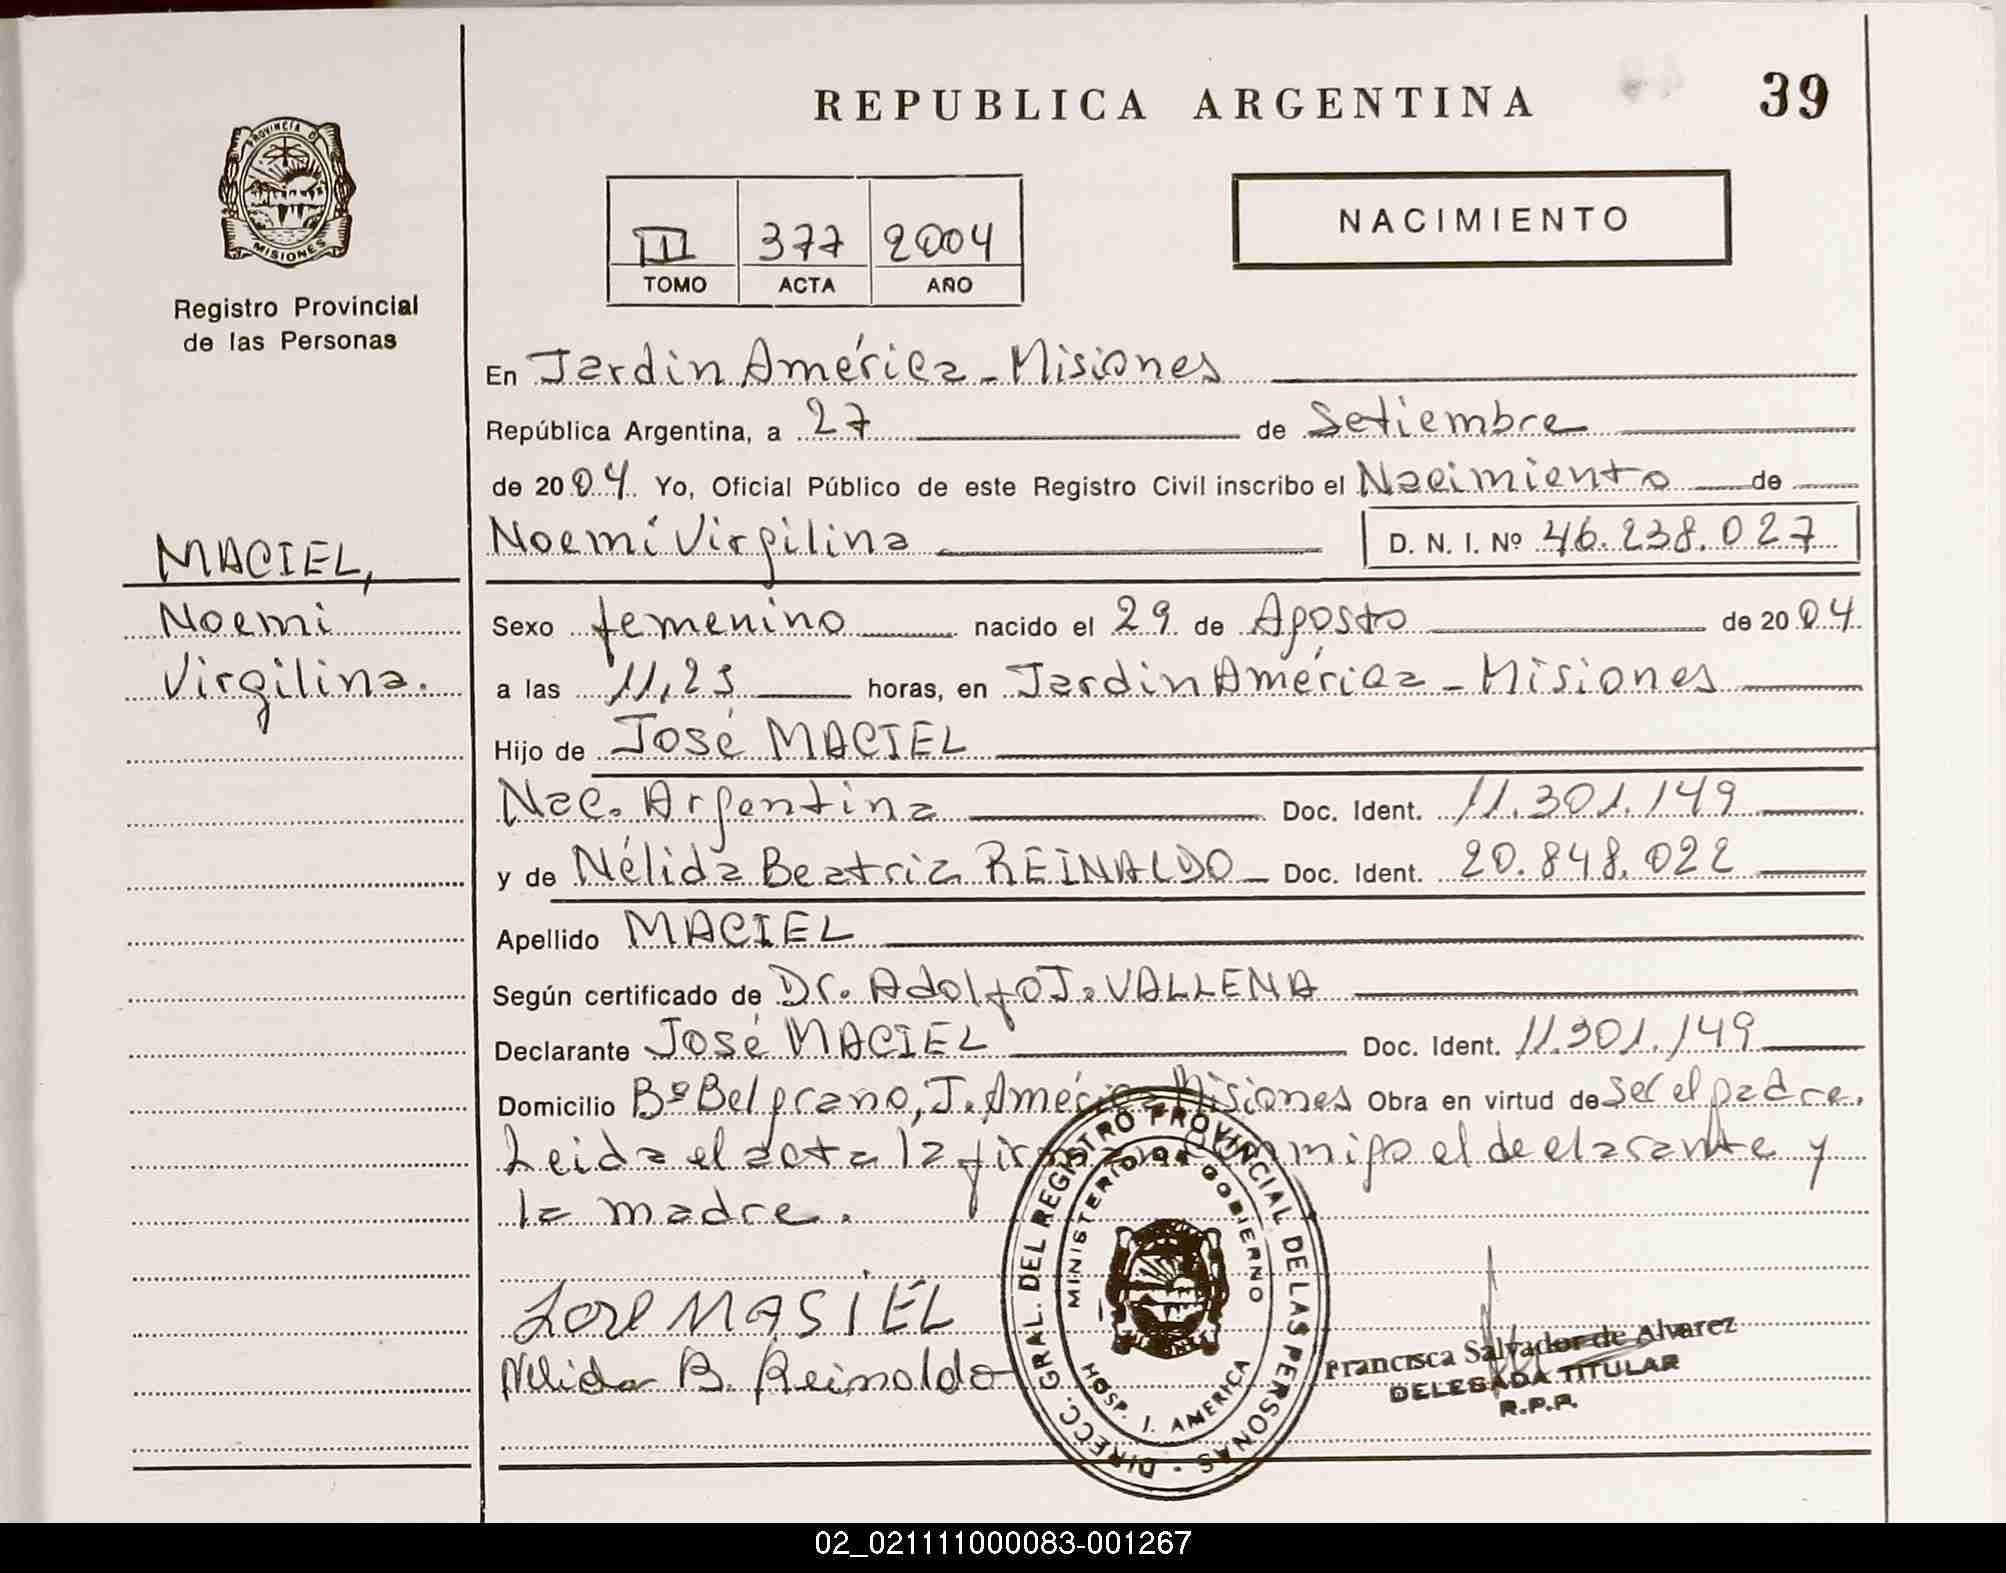 REPUBLICA ARGENTINA
39
PROVINCIA D
MISIONES
Registro Provincial
de las Personas
III 377 2004
TOMO ACTA AÑO
NACIMIENTO
MACIEL,
Noemi
Virgilina.
En Jardin América - Misiones
República Argentina, a 27 de Setiembre
de 2004. Yo, Oficial Público de este Registro Civil inscribo el Nacimiento de
Noemí Virgilina D. N. I. Nº 46.238.027
Sexo femenino nacido el 29 de Agosto de 2004.
a las 11,25 horas, en Jardin América - Misiones
Hijo de José MACIEL
Nac. Argentina Doc. Ident. 11.301.149
y de Nélida Beatriz REINALDO Doc. Ident. 20.848.022
Apellido MACIEL
Según certificado de Dr. Adolfo J. VALLENA
Declarante José MACIEL Doc. Ident. 11.301.149
Domicilio Bº Belgrano, J. América Misiones Obra en virtud de ser el padre.
Leida el acta la firman conmigo el declarante y
la madre.
José MASIEL
Nelida B. Reinaldo
DIRECC. GRAL. DEL REGISTRO PROVINCIAL DE LAS PERSONAS -
MINISTERIO DE GOBIERNO
HOSP. J. AMERICA
Francisca Salvador de Alvarez
DELEGADA TITULAR
R.P.P.
02_021111000083-001267